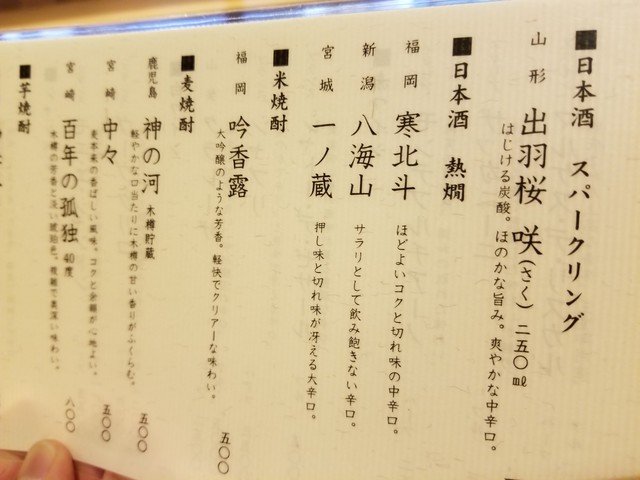 日本酒 スパークリング
山形 出羽桜 咲(さく) 二五〇㎖
はじける炭酸。ほのかな旨み。爽やかな中辛口。
日本酒 熱燗
福岡 寒北斗 ほどよいコクと切れ味の中辛口。
新潟 八海山 サラリとして飲み飽きない辛口。
宮城 一ノ蔵 押し味と切れ味が冴える大辛口。
米焼酎
福岡 吟香露 五〇〇
大吟醸のような芳香。軽快でクリアーな味わい。
麦焼酎
鹿児島 神の河 木樽貯蔵 五〇〇
軽やかな口当たりに木樽の甘い香りがふくらむ。
宮崎 中々 五〇〇
麦本来の香ばしい風味。コクと余韻が心地よい。
宮崎 百年の孤独 40度 八〇〇
木樽の芳香と淡い琥珀色。複雑で奥深い味わい。
芋焼酎